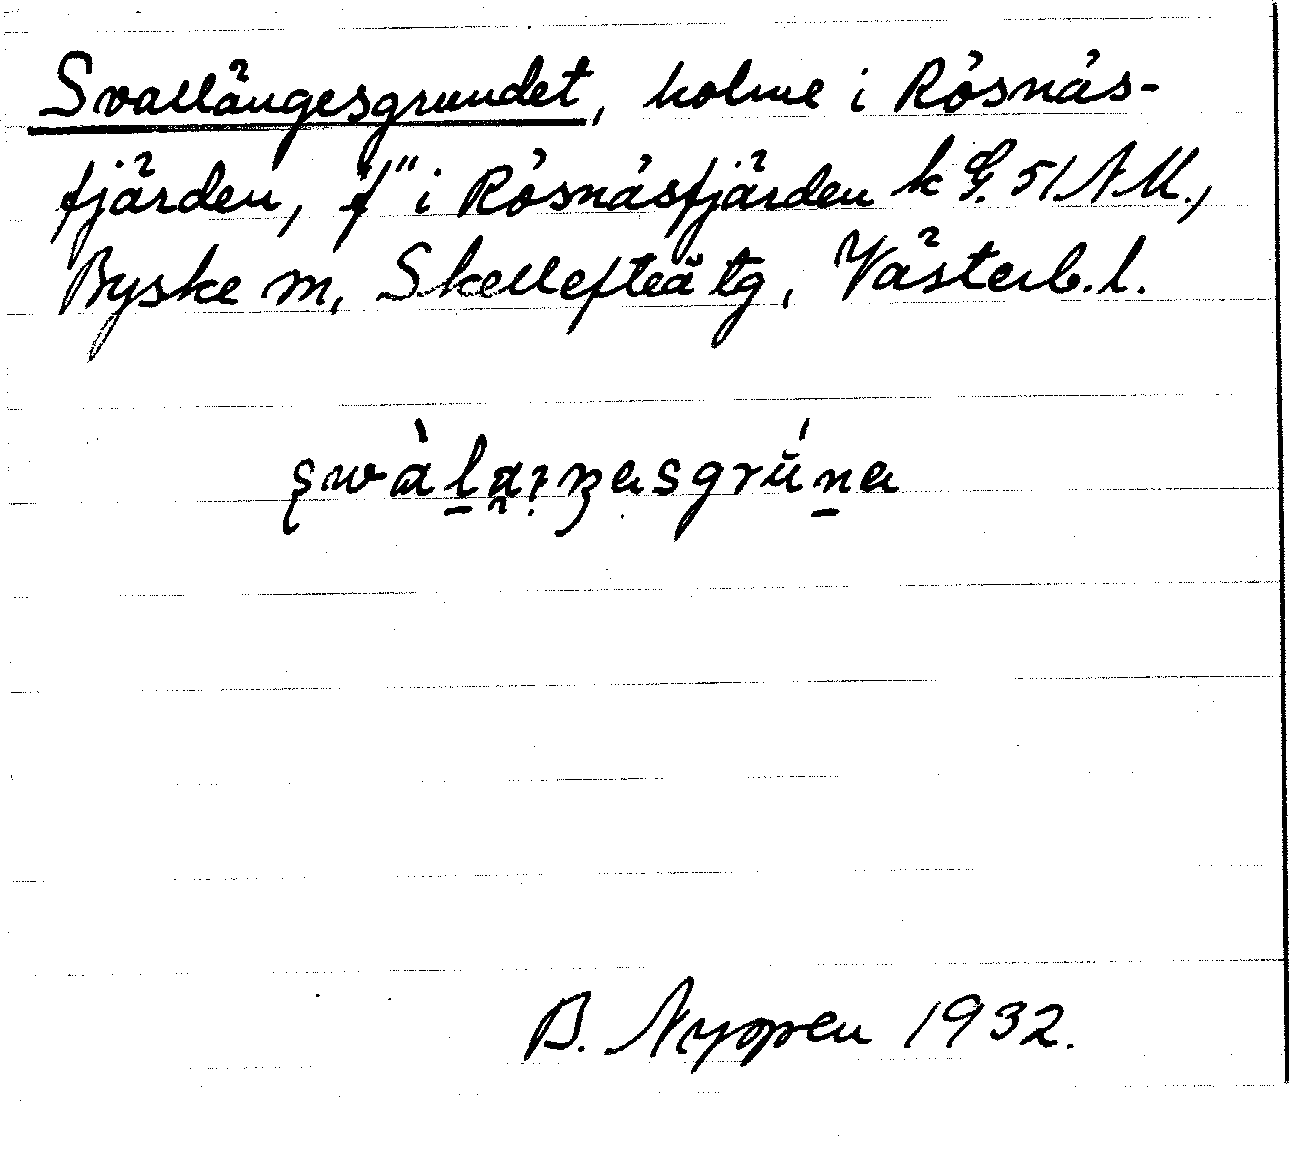 Svallängesgrundet, holme i Rösnäs-
fjärden, f" i Rösnäsfjärden k G. 51 NM.,
Byske sn, Skellefteå tg, Västerb. l.
B. Nyppen 1932.